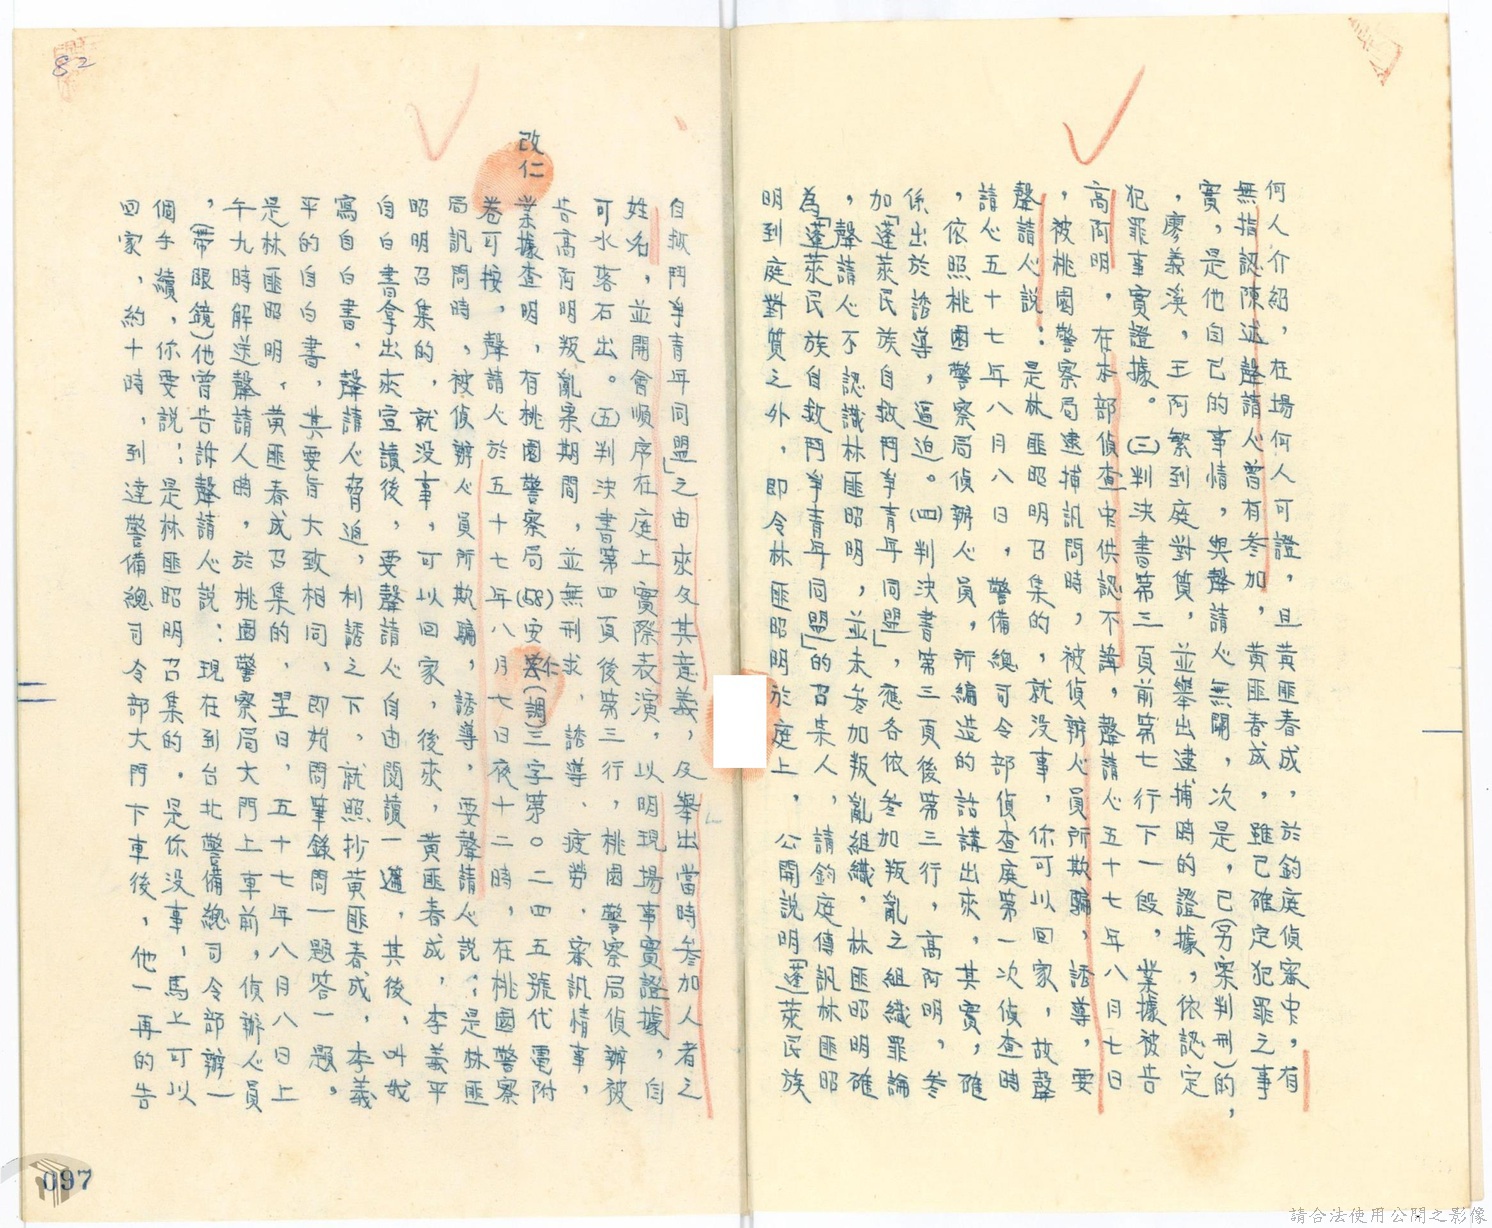 何人介紹，在場何人可證，且黃匪春成，於鈞庭偵審中，有
無指認陳述聲請人曾有參加，黃匪春成，雖已確定犯罪之事
實，是他自己的事情，與聲請人無關，次是，已（另案判刑）的，
，廖義溪，王阿繁到庭對質，並舉出逮捕時的證據，依認定
犯罪事實證據。㈢判決書第三頁前第七行下一段，業據被告
高阿明，在本部偵查中供認不諱，聲請人五十七年八月七日
，被桃園警察局逮捕訊問時，被偵辦人員所欺騙，誘導，要
聲請人說：是林匪昭明召集的，就没事，你可以回家，故聲
請人五十七年八月八日，警備總司令部偵查庭第一次偵查時
，依照桃園警察局偵辦人員，所編造的話講出來，其實，確
係出於誘導，逼迫。㈣判決書第三頁後第三行，高阿明，參
加「蓬萊民族自救鬥爭青年同盟」，應各依參加叛亂之組織罪論
，聲請人不認識林匪昭明，並未參加叛亂組織，林匪昭明確
為「蓬萊民族自救鬥爭青年同盟」的召集人，請鈞庭傳訊林匪昭
明到庭對質之外，即令林匪昭明於庭上，公開說明「蓬萊民族
自救鬥爭青年同盟」之由來及其意義，及舉出當時參加人者之
姓名，並開會順序在庭上實際表演，以明現場事實證據，自
可水落石出。㈤判決書第四頁後第三行，桃園警察局偵辦被
告高阿明叛亂案期間，並無刑求，誘導、疲勞，審訊情事，
改仁
業據查明，有桃園警察局(58)安仁(調)三字第0二四五號代電附
卷可按，聲請人於五十七年八月七日夜十二時，在桃園警察
局訊問時，被偵辦人員所欺騙，誘導，要聲請人說：是林匪
昭明召集的，就没事，可以回家，後來，黃匪春成，李義平
自白書拿出來宣讀後，要聲請人自由閱讀一遍，其後，叫我
寫自白書，聲請人脅迫，利誘之下，就照抄黃匪春成，李義
平的自白書，其要旨大致相同，即始問筆錄問一題答一題。
是林匪昭明，黃匪春成召集的，翌日，五十七年八月八日上
午九時解送聲請人時，於桃園警察局大門上車前，偵辦人員
，（帶眼鏡）他曾告訴聲請人說：現在到台北警備總司令部辦一
個手續，你要說：是林匪昭明召集的，是你没事，馬上可以
回家，約十時，到達警備總司令部大門下車後，他一再的告
82
097
請合法使用公開之影像